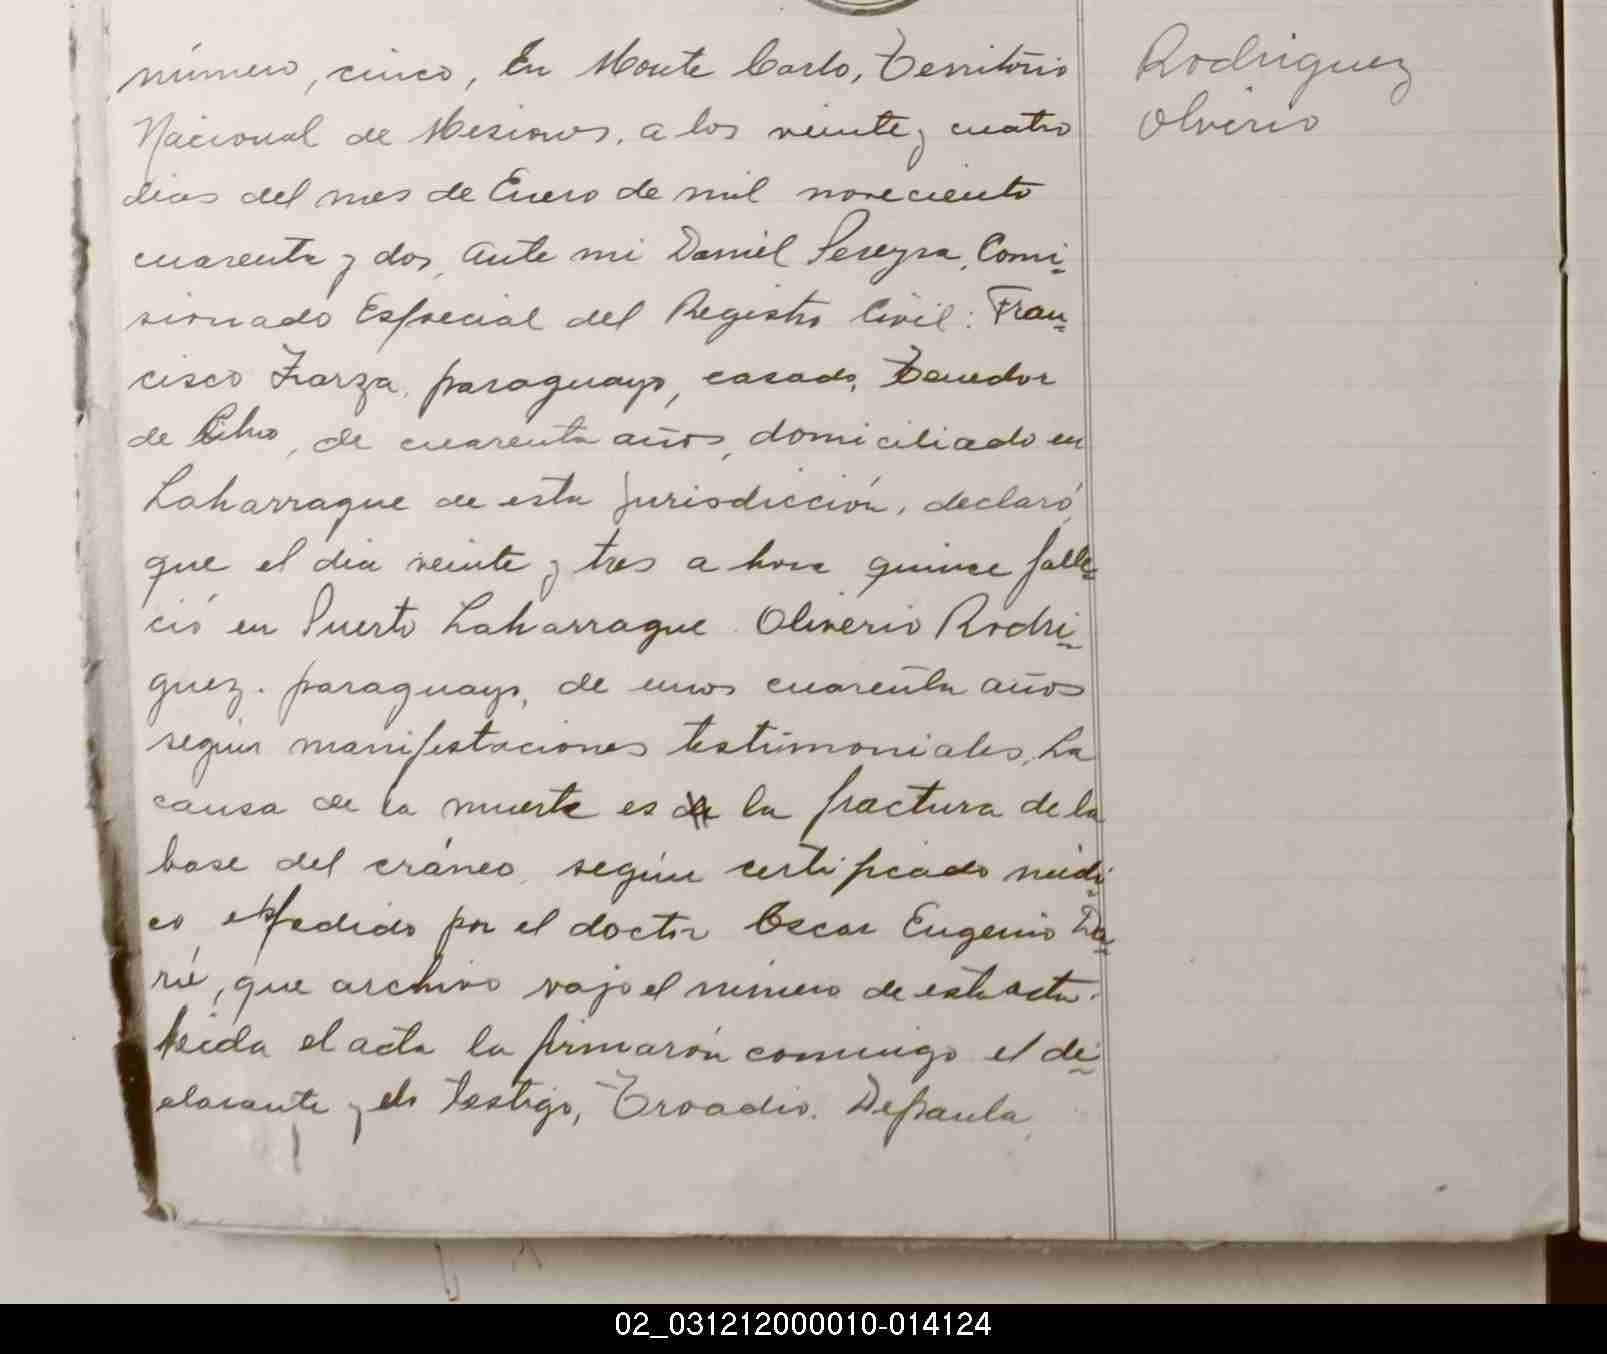 número, cinco, En Monte Carlo, Territorio
Nacional de Misiones, a los veinte y cuatro
dias del mes de Enero de mil noveciento
cuarenta y dos, ante mi Daniel Pereyra, Comi-
sionado Especial del Registro Civil: Fran-
cisco Zarza, paraguayo, casado, Tenedor
de Libro, de cuarenta años, domiciliado en
Laharrague de esta jurisdicción, declaró,
que el dia veinte y tres a hora quince falle-
ció en Puerto Laharrague Oliverio Rodri-
guez. paraguayo, de unos cuarenta años
segun manifestaciones testimoniales, La
causa de la muerte es la fractura de la
base del cráneo, según certificado médi-
co, espedido por el doctor Oscar Eugenio
que archivo vajo el número de esta acta.
Leida el acta la firmarón conmigo el de-
clarante y el testigo, Troadio. Depaula,
Rodriguez
Oliverio
02_031212000010-014124